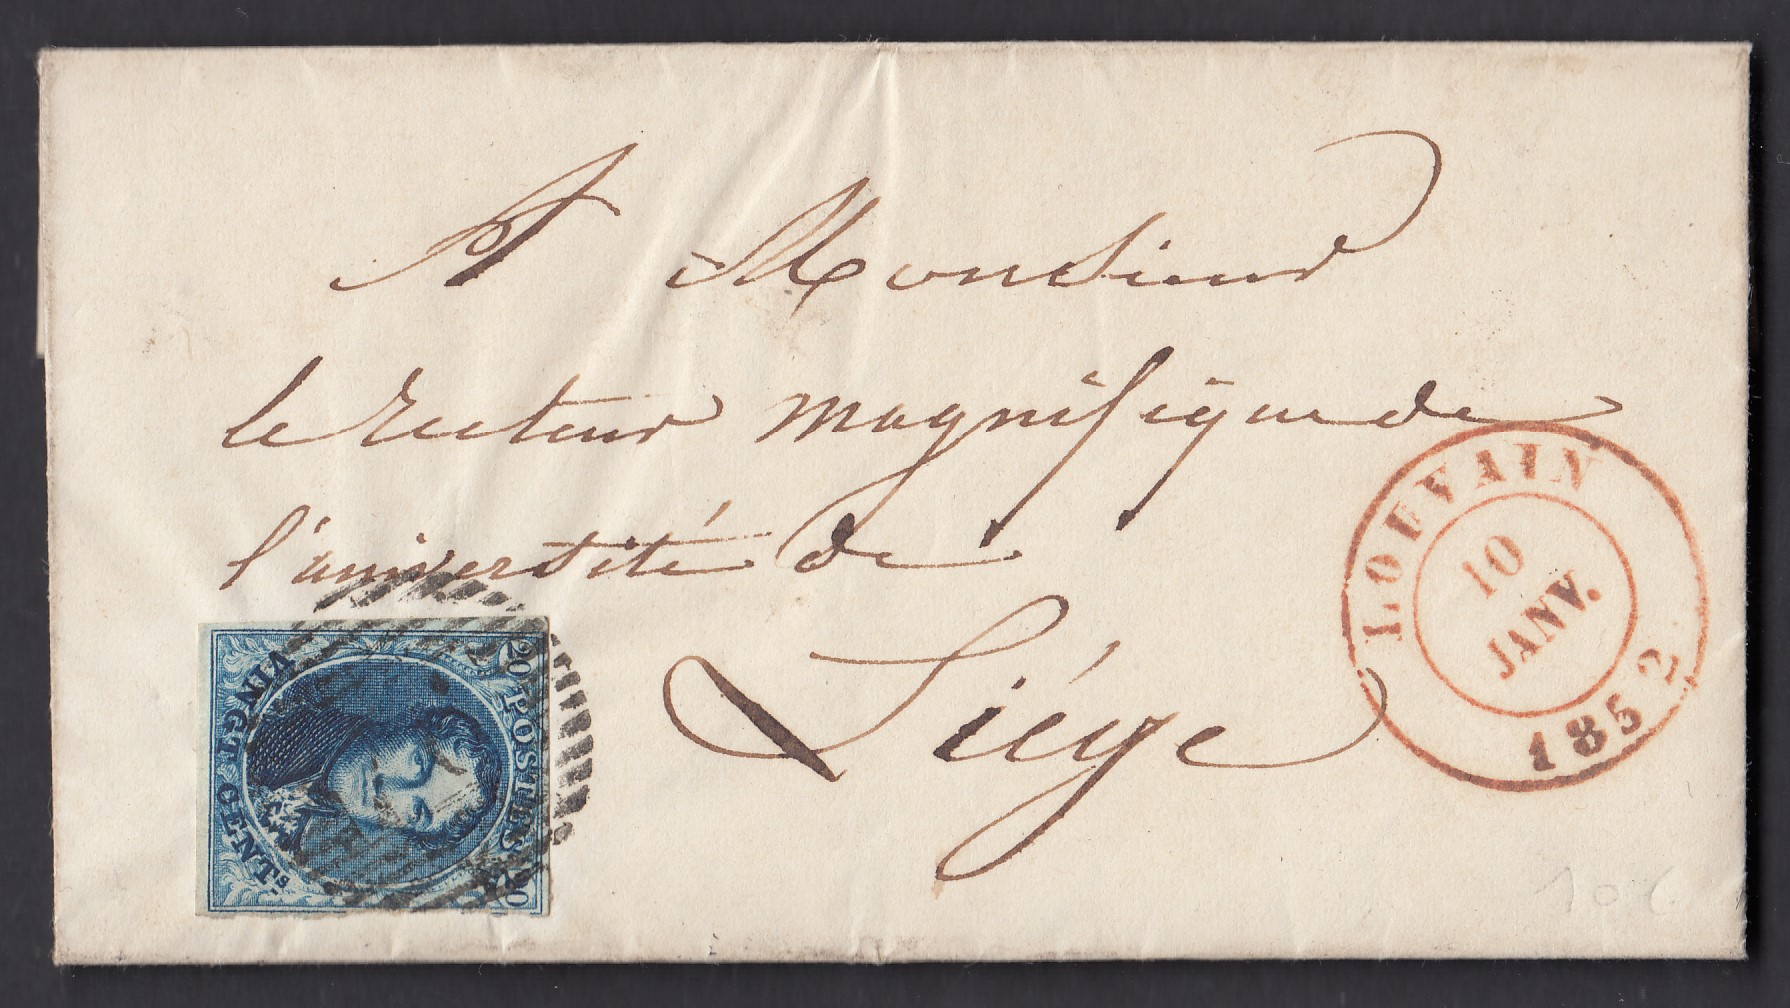 A Monsieur
le Recteur magnifique de
l'université de
Liége
LOUVAIN
10
JANV.
1852
20 POSTES 20
VINGT CENTS
10 €